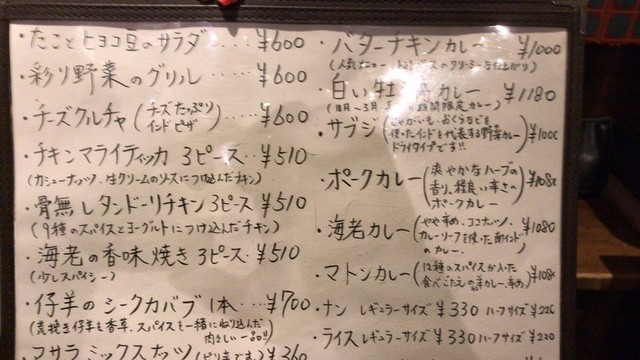 ・たことヒヨコ豆のサラダ....¥600
・彩り野菜のグリル....¥600
・チーズクルチャ(チーズたっぷりインドピザ)¥600
・チキンマライティッカ 3ピース・¥510
(カシューナッツ、生クリームのソースにつけ込んだチキン)
・骨無しタンドーリチキン3ピース ¥510
(9種のスパイスとヨーグルトにつけ込んだチキン)
・海老の香味焼き3ピース・¥510
(少しスパイシー)
・仔羊のシークカバブ 1本...¥700
(荒挽き仔羊を香草、スパイスを一緒にねり込んだ
肉々しい一品!!)
マサラミックスナッツ ¥360
・バターチキンカレー ¥1000
(人気 クリーミーな仕上がり)
・白い カレー ¥1180
期間限定カレー)
・サブジ(じゃがいも、おくらなどを
使ったインドを代表する野菜カレー
ドライタイプです!!)
・ポークカレー(爽やかなハーブの
香り、程良い辛さの
ポークカレー
・海老カレー(やや辛め、ココナッツ、
カレーリーフを使った南インド
のカレー。 ¥1080
・マトンカレー(12種のスパイスが入った
食べごたえの カレー、辛め)
・ナン レギュラーサイズ ¥330 ハーフサイズ
・ライス レギュラーサイズ ¥330 ハーフサイズ ¥220